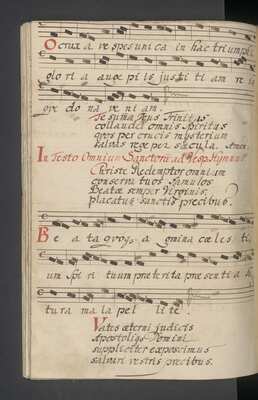 O crux a ve spes unica in hac triumphi
glori a auge pi is justi ti am re is
que do na ve ni am.
Te suma Deus Trinitas
collaudet omnis spiritus
quos per crucis mysterium
salvas rege per sæcula. Amen.
In Festo Omnium Sanctorū ad Vesp. Hymnus
Christe Redemptor omnium
conserva tuos famulos
Beatæ semper Virginis,
placatus sanctis precibus.
Be a ta quoqs a gmina cæles ti
um spi ri tuum præterita præsenti a fu
tura ma la pel li te.
Vates æterni judicis
Apostoliqs Domini
suppliciter exposcimus
salvari vestris precibus.